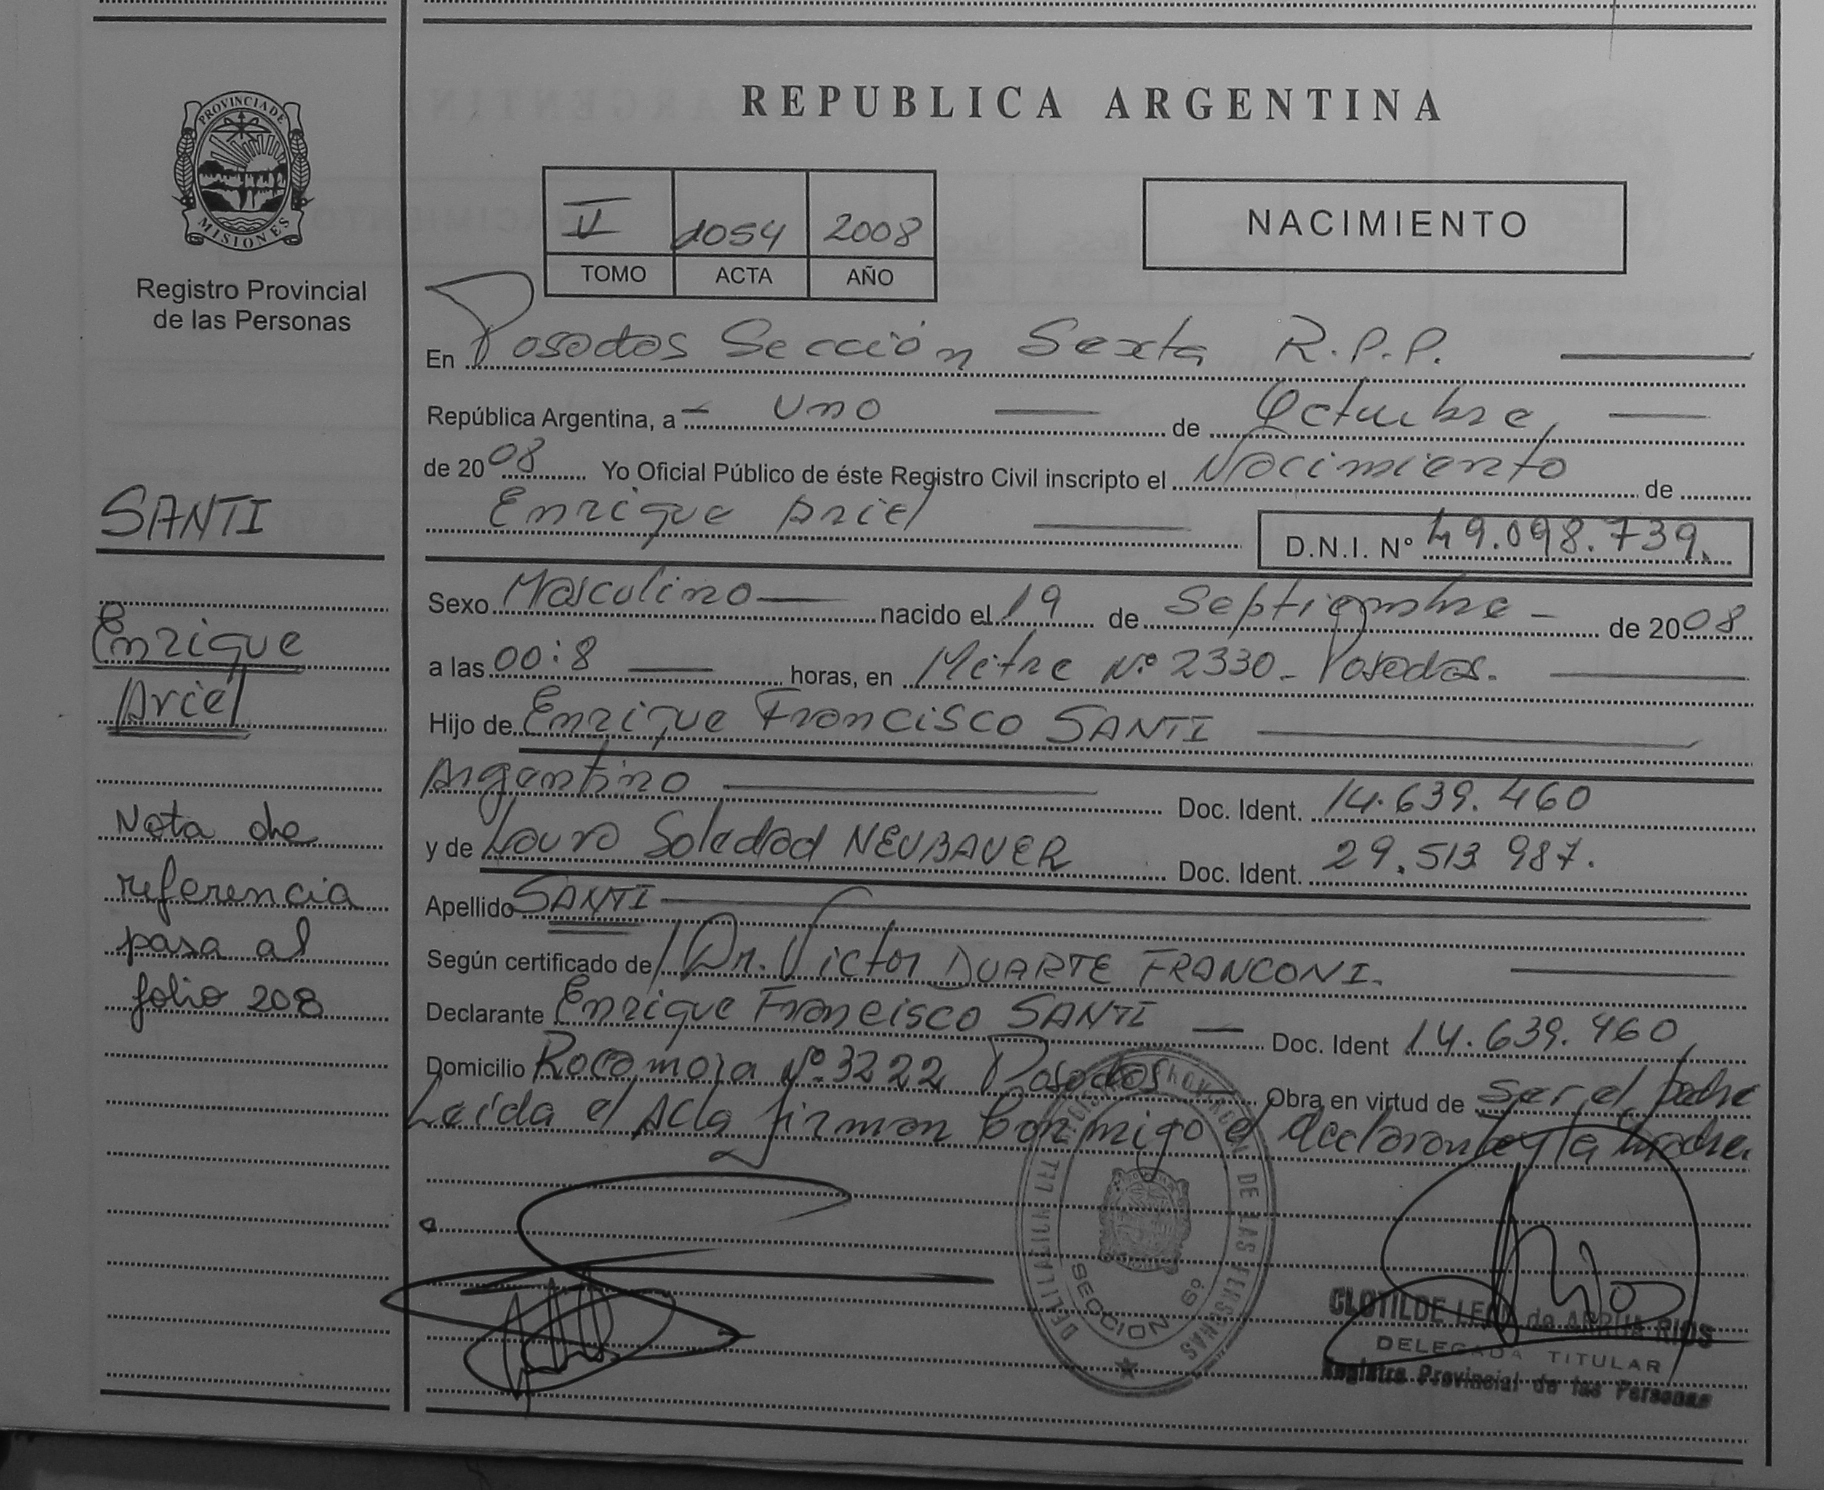 REPUBLICA ARGENTINA
PROVINCIA DE
MISIONES
Registro Provincial
de las Personas
II 1054 2008
TOMO ACTA AÑO
NACIMIENTO
En Posadas Sección Sexta R.P.P.
República Argentina, a uno de Octubre
de 2008 Yo Oficial Público de éste Registro Civil inscripto el Nacimiento de
Enrique Ariel
D.N.I. Nº 49.098.739.
SANTI
Enrique
Ariel
Nota de
referencia
pasa al
folio 208
Sexo Masculino nacido el 19 de Septiembre de 2008
a las 00:8 horas, en Mitre Nº 2330 - Posadas.
Hijo de Enrique Francisco SANTI
Argentino Doc. Ident. 14.639.460
y de Laura Soledad NEUBAUER Doc. Ident. 29.513 987.
Apellido SANTI
Según certificado de Dr. Victor DUARTE FRANCONI.
Declarante Enrique Francisco SANTI Doc. Ident 14.639.460
Domicilio Rocamora Nº 3222 Posadas Obra en virtud de ser el padre
Leída el Acta firman conmigo el declarante y la madre
DE LAS PERSONAS
SECCION 6º
CLOTILDE de ARRUA RIOS
DELEGADA TITULAR
Registro Provincial de las Personas